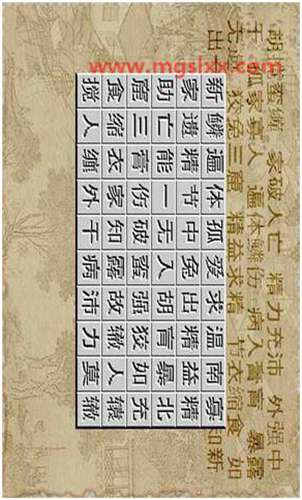 www.mgslxx.com
胡搅蛮缠 家破人亡 精力充沛 外强中
干 孤家寡人 遍体鳞伤 病入膏肓 暴露
无遗 狡兔三窟 精益求精 节衣缩食 如
出 知新
新鳞遍体孤爱求温南寡
家遗精节中兔出精益精
助亡能一无入胡肓暴北
窟三膏伤破蛮强狡如充
食缩衣家知露故辙人辕
搅人缠外干病沛力莫辙